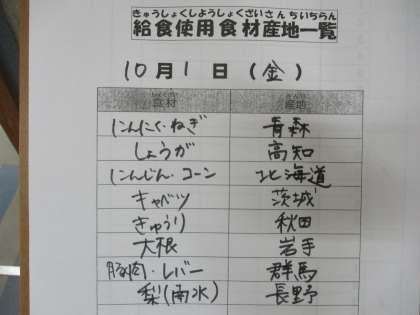 きゅうしょくしようしょくざいさんちいちらん
給食使用食材産地一覧
10月1日(金)
食材 産地
にんにく・ねぎ 青森
しょうが 高知
にんじん・コーン 北海道
キャベツ 茨城
きゅうり 秋田
大根 岩手
豚肉・レバー 群馬
梨(南水) 長野